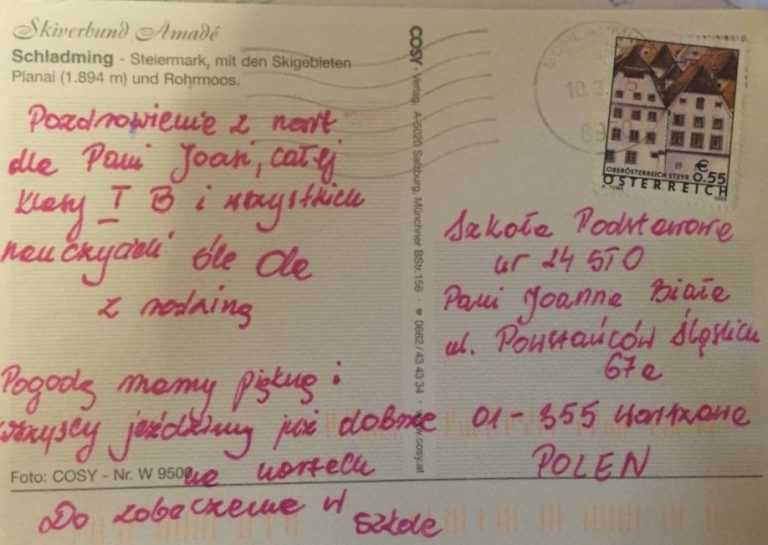 Skiverbund Amadé
Schladming - Steiermark, mit den Skigebieten
Planai (1.894 m) und Rohrmoos.
Pozdrowienie z nart
dla Pani Joasi, całej
klasy I B i wszystkich
nauczycieli śle Ola
z rodziną
Pogodę mamy piękną i
wszyscy jeździmy już dobrze
na nartach
Do zobaczenia w
szkole
Foto: COSY - Nr. W 9500
COSY - Verlag, A-5020 Salzburg, Münchner BStr.156 · ☎ 0662/43 43 34 · www.cosy.at
SCHLADMING
OBERÖSTERREICH STEYR
€ 0.55
ÖSTERREICH
Szkoła Podstawowa
nr 24 STO
Pani Joanna Biała
ul. Powstańców Śląskich
67a
01-355 Warszawa
POLEN